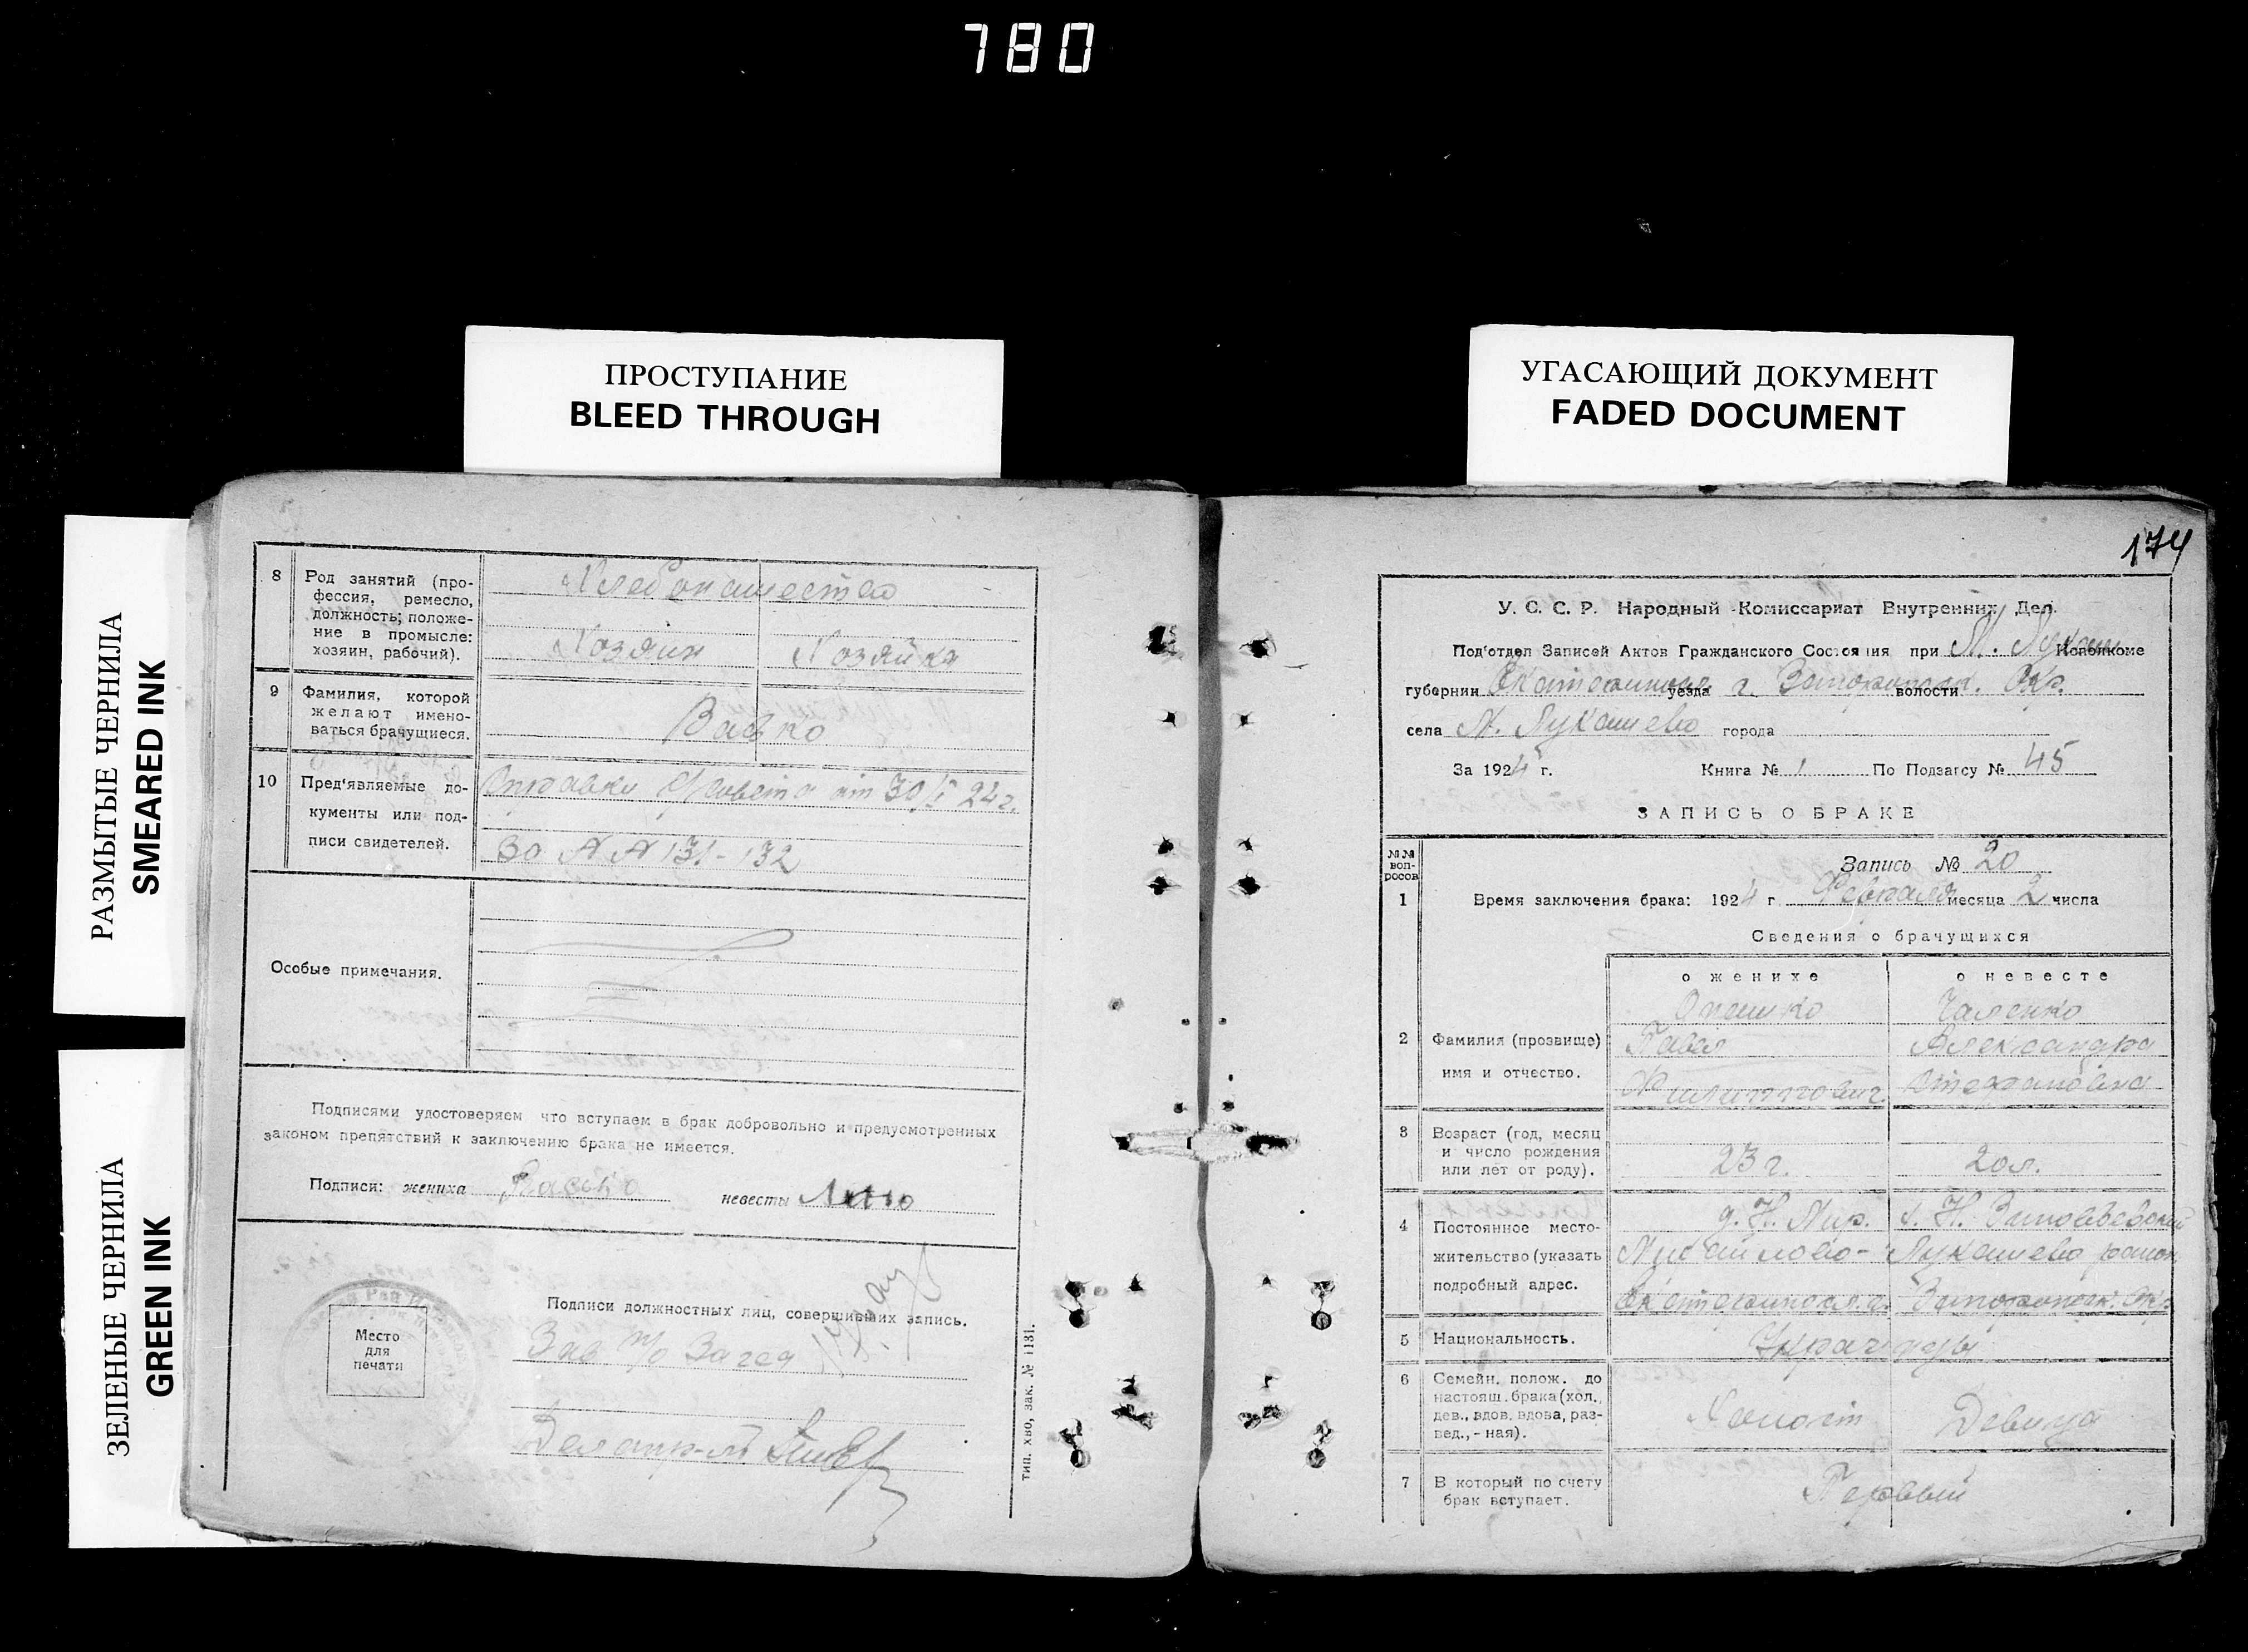 780
ПРОСТУПАНИЕ
BLEED THROUGH
УГАСАЮЩИЙ ДОКУМЕНТ
FADED DOCUMENT
РАЗМЫТЫЕ ЧЕРНИЛА
SMEARED INK
ЗЕЛЕНЫЕ ЧЕРНИЛА
GREEN INK
8 Род занятий (про-
фессия, ремесло,
должность; положе-
ние в промысле:
хозяин, рабочий).
Хлебопашество
Хозяин Хозяйка
9 Фамилия, которой
желают имено-
ваться брачущиеся.
10 Пред'являемые до-
кументы или под-
писи свидетелей.
от 30/I 24 г.
За № № 131-132
Особые примечания.
Подписями удостоверяем что вступаем в брак добровольно и предусмотренных
законом препятствий к заключению брака не имеется.
Подписи: жениха невесты
Место
для
печати
Подписи должностных лиц, совершивших запись.
Зав п/о Загса
тип. хво, зак. № 1131.
174
У. С. С. Р. Народный Комиссариат Внутренних Дел.
Под'отдел Записей Актов Гражданского Состояния при
губернии уезда волости Окр.
села М. Лукашево города
За 1924 г. Книга № 1 По Подзагсу № 45
ЗАПИСЬ О БРАКЕ
№№
воп-
росов
Запись № 20
1 Время заключения брака: 1924 г Февраля месяца 2 числа
Сведения о брачущихся
о женихе о невесте
2 Фамилия (прозвище)
имя и отчество.
Опешко Чаленко
Павел Александра
Филиппович Стефановна
3 Возраст (год, месяц
и число рождения
или лет от роду).
23 г. 20 л.
4 Постоянное место-
жительство (указать
подробный адрес.
Михайлово- Лукашево район
5 Национальность.
Украинцы
6 Семейн. полож. до
настоящ. брака (хол.,
дев., вдов, вдова, раз-
вед., - ная).
Холост Девица
7 В который по счету
брак вступает.
Первый